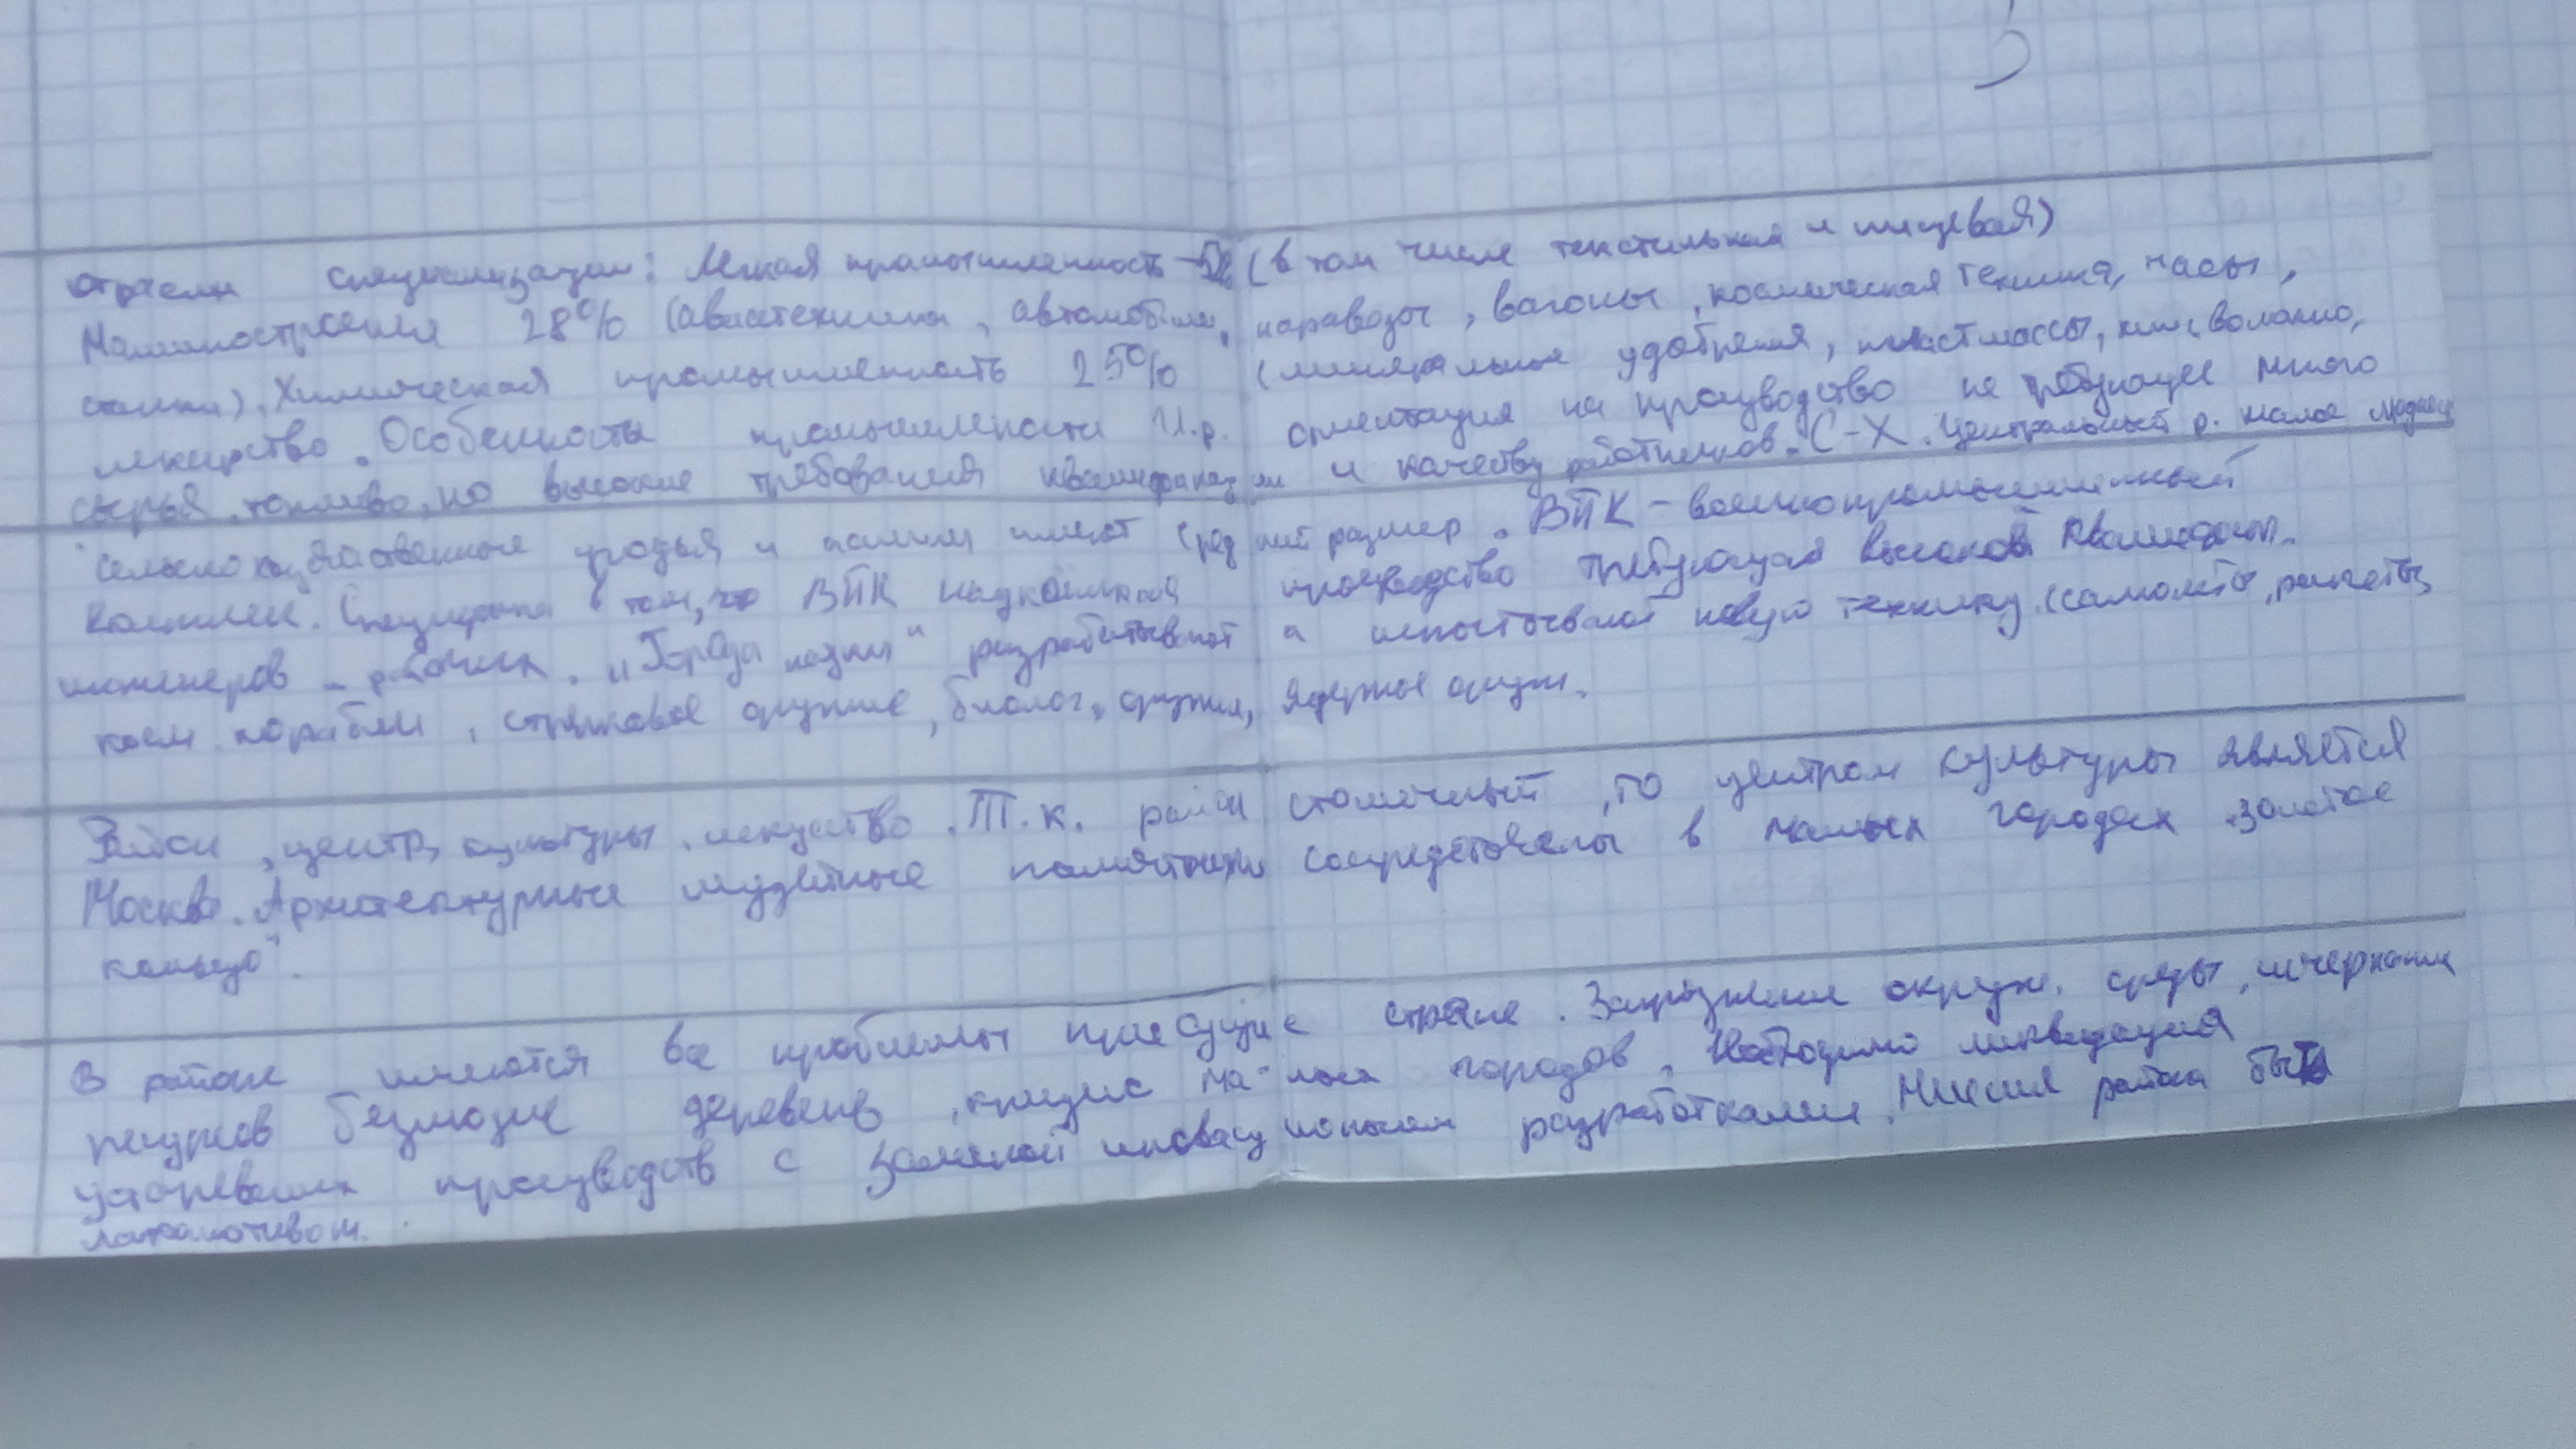 3
Отрасли специализации: Легкая промышленность (в том числе текстильная и пищевая)
Машиностроения 28% (авиатехника, автомобили, паравозы, вагоны, космическая техника, часы,
станки). Химическая промышленность 25% (минеральные удобрения, пластмассы, хим. волокно,
лекарство. Особенность промышленности Ц.р. ориентация на производство не требующее много
сырья, топливо, но высокие требования квалификации и качеству работников. С-Х. Центральный р. малое
сельскохозяйственные угодья и пашни имеют средний размер. ВПК - военнопромышленный
комплекс. Специфика в том, что ВПК наукоёмкая производство требующая высокой квалификации
инженеров и рабочих. „Города науки" разрабатывают и испытывают новую технику. (самолёты, ракеты,
косм. корабли, стрелковое оружие, биолог. оружия, ядерное оружи.
Район „центр„ культуры, искуство. Т.к. район столичный, то центром культуры является
Москва. Архитектурные музейные памятники сосредоточены в малых городах „золотое
кольцо".
В районе имеются все проблемы присущие стране. Загрязнение окруж. среды, исчерпание
ресурсов безлюдие деревень, кризис ма- лых городов. Необходимо ликвидация
устаревших производств с заменой инновационными разработками. Миссия района быть
локомотивом.